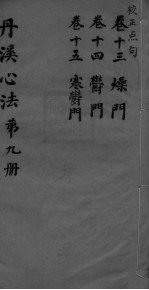 校正点句
卷十三 燥門
卷十四 鬱門
卷十五 寒鬱門
丹溪心法 第九册